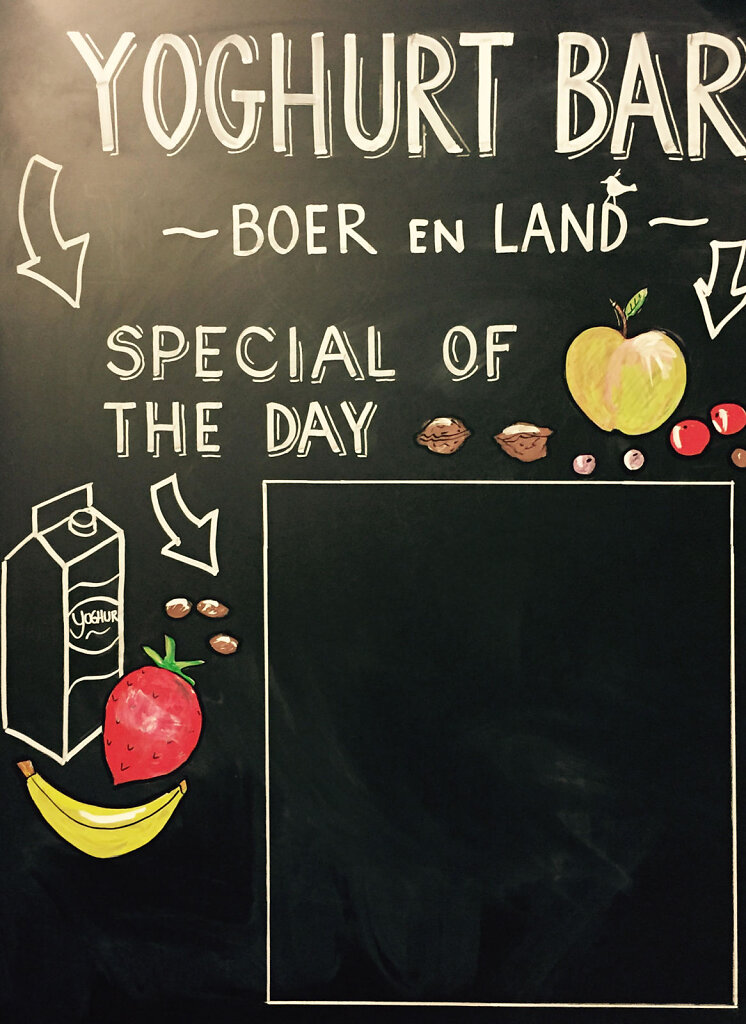 YOGHURT BAR
~ BOER EN LAND ~
SPECIAL OF
THE DAY
YOGHUR